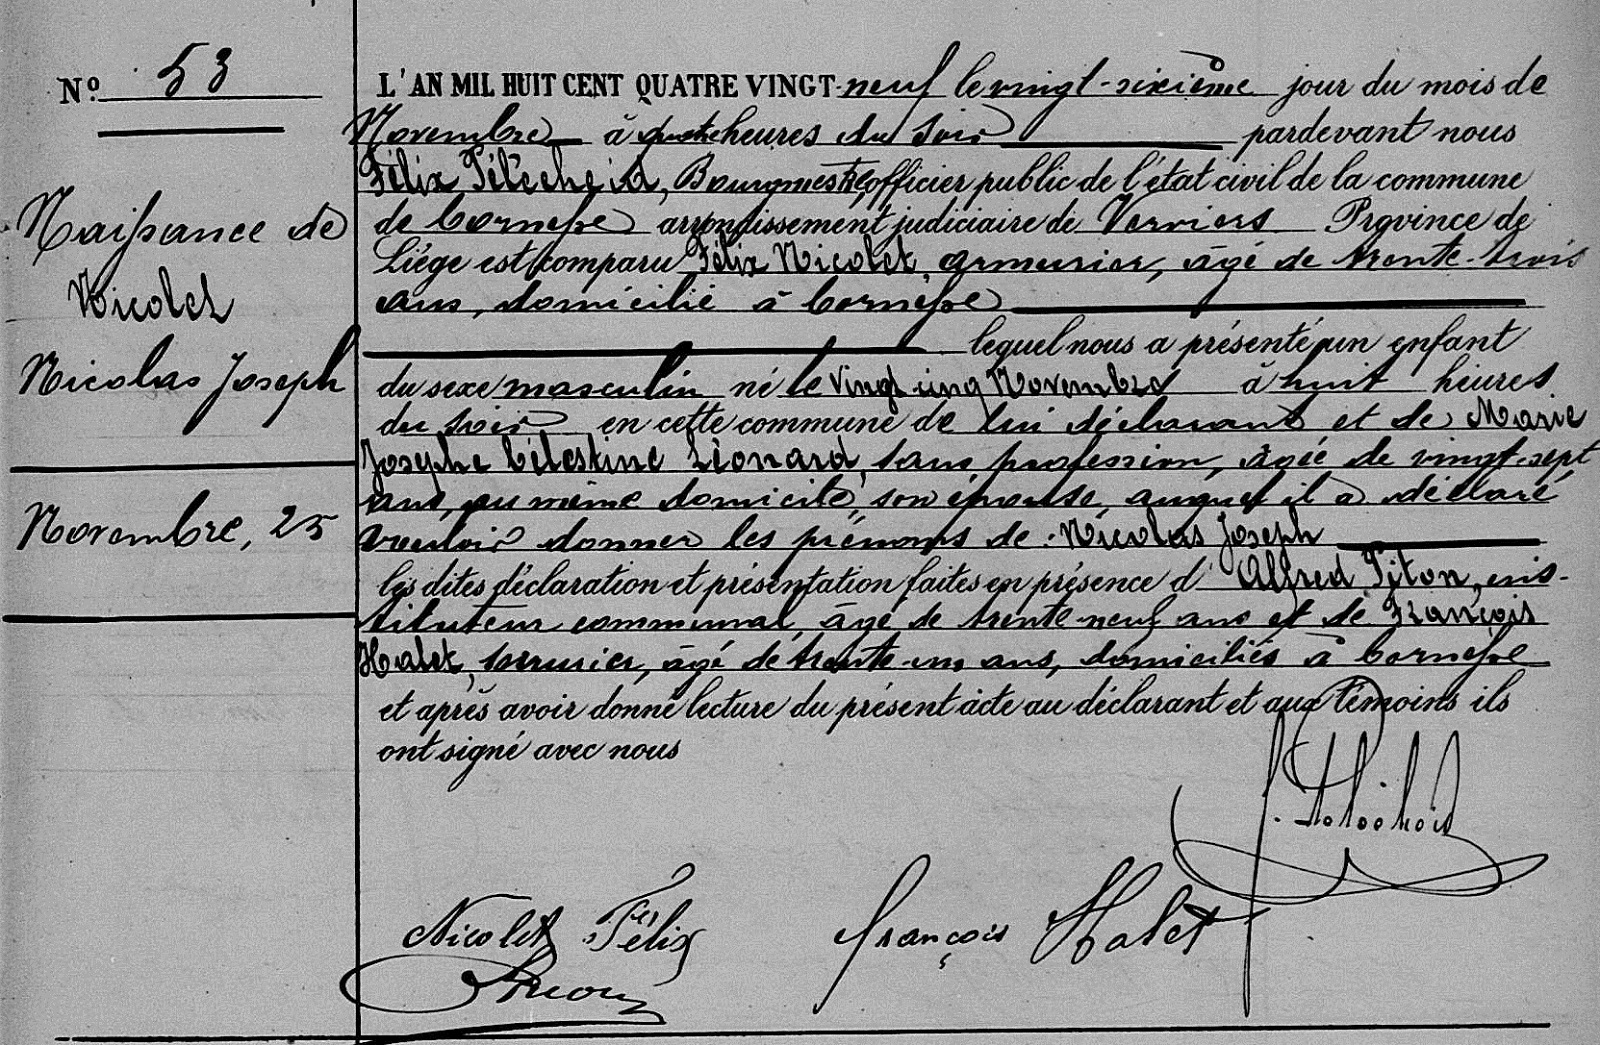 N.o 53
Naissance de
Nicolet
Nicolas Joseph
Novembre, 25
L'AN MIL HUIT CENT QUATRE VINGT-neuf le vingt-sixième jour du mois de
Novembre à quatre heures du soir pardevant nous
Félix Pélécheid, Bourgmestre, officier public de l'état civil de la commune
de Cornesse arrondissement judiciaire de Verviers Province de
Liége est comparu Félix Nicolet, armurier, âgé de trente-trois
ans, domicilié à Cornesse
lequel nous a présenté un enfant
du sexe masculin né le vingt cinq Novembre à huit heures
du soir en cette commune de lui déclarant et de Marie
Josephe Célestine Léonard, sans profession, âgée de vingt-sept
ans, au même domicile, son épouse, auquel il a déclaré
vouloir donner les prénoms de : Nicolas Joseph
les dites déclaration et présentation faites en présence d' Alfred Piton, ins-
tituteur communal, âgé de trente-neuf ans et de François
Halet, serrurier, âgé de trente-un ans, domiciliés à Cornesse
et après avoir donné lecture du présent acte au déclarant et aux témoins ils
ont signé avec nous
Nicolet Félix
François Halet